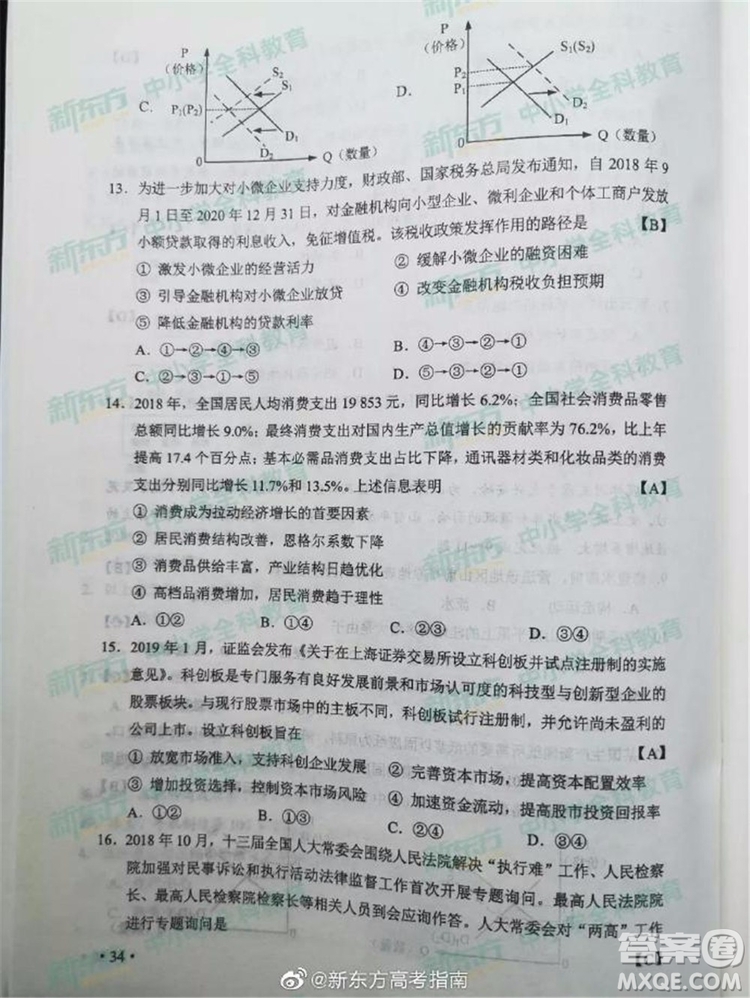 P
(价格)
S₂
S₁
P₁(P₂)
D₁
D₂
0
Q (数量)
C.
P
(价格)
S₁(S₂)
P₂
P₁
D₂
D₁
0
Q (数量)
D.
13. 为进一步加大对小微企业支持力度，财政部、国家税务总局发布通知，自 2018 年 9
月 1 日至 2020 年 12 月 31 日，对金融机构向小型企业、微利企业和个体工商户发放
小额贷款取得的利息收入，免征增值税。该税收政策发挥作用的路径是 【B】
① 激发小微企业的经营活力 ② 缓解小微企业的融资困难
③ 引导金融机构对小微企业放贷 ④ 改变金融机构税收负担预期
⑤ 降低金融机构的贷款利率
A. ①→②→④→③ B. ④→③→②→①
C. ②→③→⑤→① D. ④→⑤→②→①
14. 2018 年，全国居民人均消费支出 19 853 元，同比增长 6.2%；全国社会消费品零售
总额同比增长 9.0%；最终消费支出对国内生产总值增长的贡献率为 76.2%，比上年
提高 17.4 个百分点；基本必需品消费支出占比下降，通讯器材类和化妆品类的消费
支出分别同比增长 11.7%和 13.5%。上述信息表明 【A】
① 消费成为拉动经济增长的首要因素
② 居民消费结构改善，恩格尔系数下降
③ 消费品供给丰富，产业结构日趋优化
④ 高档品消费增加，居民消费趋于理性
A. ①② B. ①④ C. ②③ D. ③④
15. 2019 年 1 月，证监会发布《关于在上海证券交易所设立科创板并试点注册制的实施
意见》。科创板是专门服务有良好发展前景和市场认可度的科技型与创新型企业的
股票板块。与现行股票市场中的主板不同，科创板试行注册制，并允许尚未盈利的
公司上市。设立科创板旨在 【A】
① 放宽市场准入，支持科创企业发展 ② 完善资本市场，提高资本配置效率
③ 增加投资选择，控制资本市场风险 ④ 加速资金流动，提高股市投资回报率
A. ①② B. ①③ C. ②④ D. ③④
16. 2018 年 10 月，十三届全国人大常委会围绕人民法院解决“执行难”工作、人民检察
院加强对民事诉讼和执行活动法律监督工作首次开展专题询问。最高人民法院院
长、最高人民检察院检察长等有关负责人到会应询作答。人大常委会对“两高”工作
进行专题询问是 【C】
· 34 ·
@新东方高考指南
答案圈
MXQE.COM
新东方 中小学全科教育